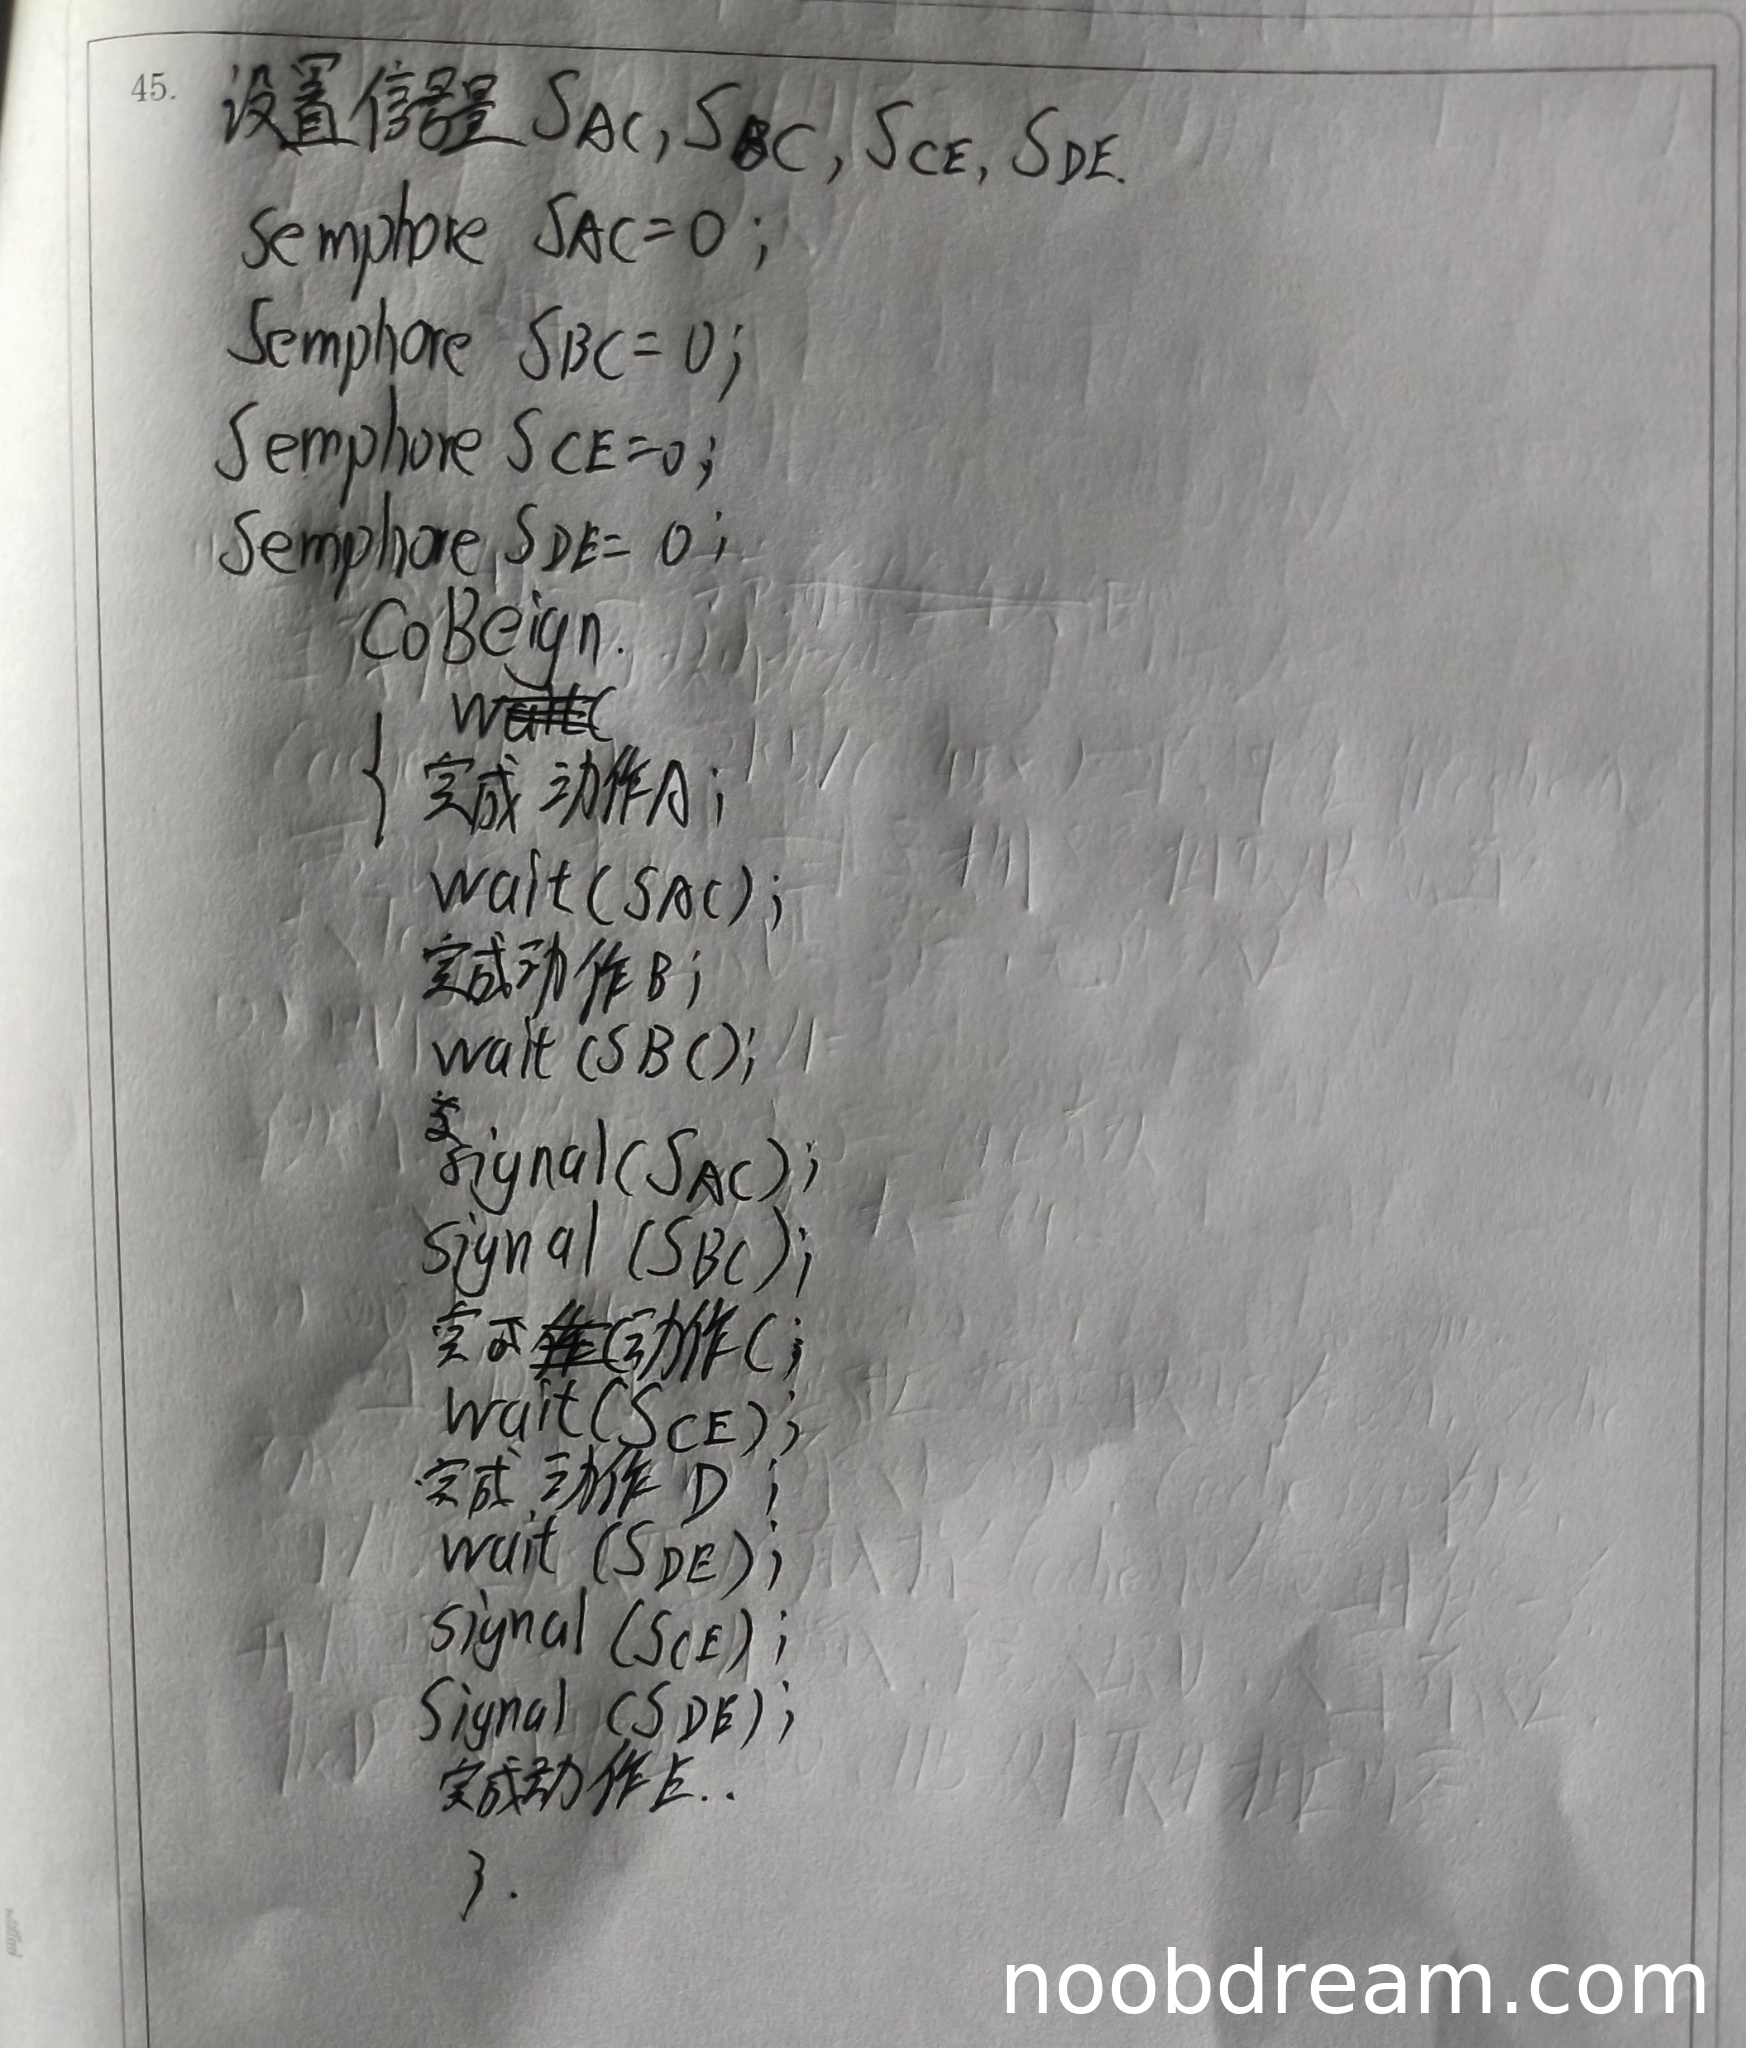 45. 设置信号量 SAC, SBC, SCE, SDE.
Semphore SAC=0;
Semphore SBC=0;
Semphore SCE=0;
Semphore SDE=0;
CoBeign.
{ 完成动作A;
wait(SAC);
完成动作B;
wait(SBC);
signal(SAC);
signal(SBC);
完成动作C;
wait(SCE);
完成动作D;
wait(SDE);
signal(SCE);
Signal(SDE);
完成动作E..
}.
noobdream.com